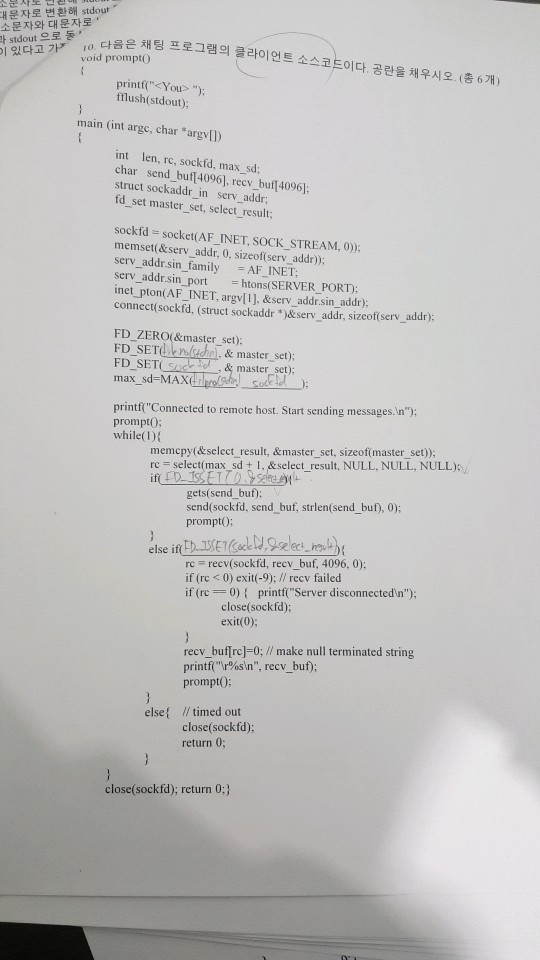 대문자로 변환해 stdout
소문자와 대문자로
과 stdout 으로 동
이 있다고 가정
10. 다음은 채팅 프로그램의 클라이언트 소스코드이다. 공란을 채우시오. (총 6개)
void prompt()
{
printf("<You> ");
fflush(stdout);
}
main (int argc, char *argv[])
{
int len, rc, sockfd, max_sd;
char send_buf[4096], recv_buf[4096];
struct sockaddr_in serv_addr;
fd_set master_set, select_result;
sockfd = socket(AF_INET, SOCK_STREAM, 0));
memset(&serv_addr, 0, sizeof(serv_addr));
serv_addr.sin_family = AF_INET;
serv_addr.sin_port = htons(SERVER_PORT);
inet_pton(AF_INET, argv[1], &serv_addr.sin_addr);
connect(sockfd, (struct sockaddr *)&serv_addr, sizeof(serv_addr);
FD_ZERO(&master_set);
FD_SET(fileno(stdin), & master_set);
FD_SET( sockfd , & master_set);
max_sd=MAX(fileno(stdin) sockfd );
printf("Connected to remote host. Start sending messages.\n");
prompt();
while(1){
memcpy(&select_result, &master_set, sizeof(master_set));
rc = select(max_sd + 1, &select_result, NULL, NULL, NULL);
if( FD_ISSET(0, &select_result){
gets(send_buf);
send(sockfd, send_buf, strlen(send_buf), 0);
prompt();
}
else if(FD_ISSET(sockfd, &select_result)){
rc = recv(sockfd, recv_buf, 4096, 0);
if (rc < 0) exit(-9); // recv failed
if (rc == 0) { printf("Server disconnected\n");
close(sockfd);
exit(0);
}
recv_buf[rc]=0; // make null terminated string
printf("\r%s\n", recv_buf);
prompt();
}
else{ // timed out
close(sockfd);
return 0;
}
}
close(sockfd); return 0;}